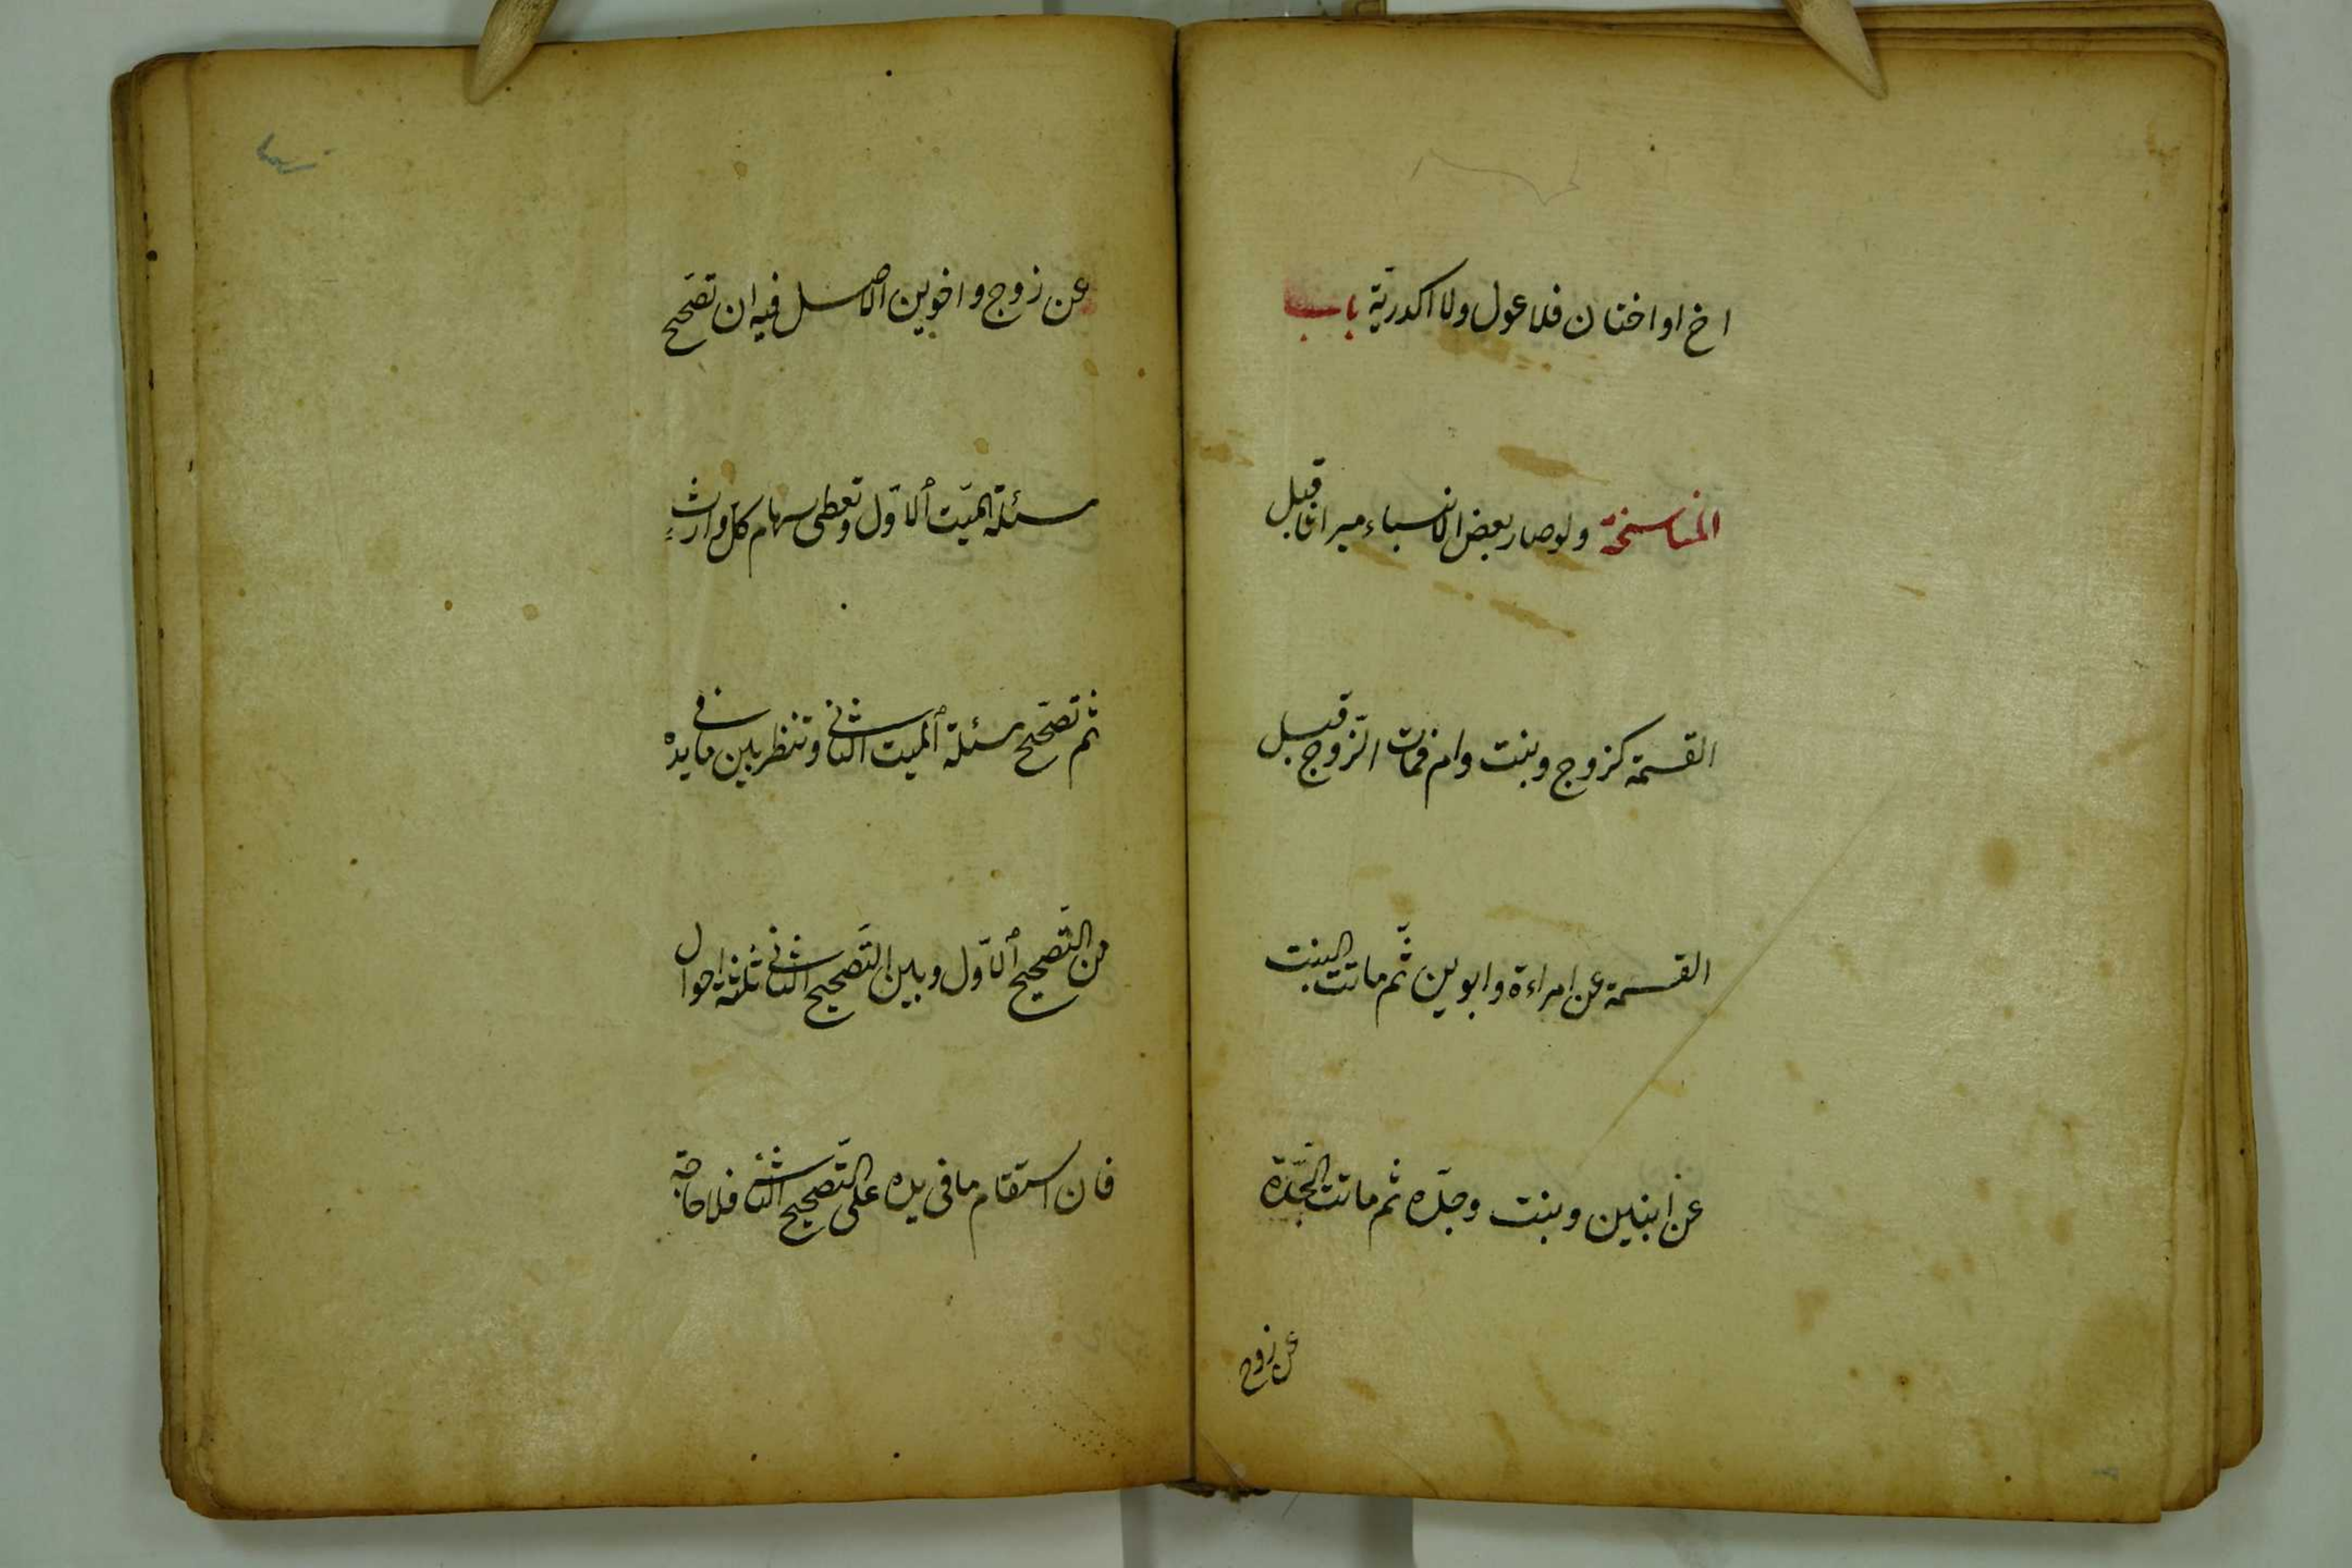 اخ او اختان فلا عول ولا اكدرية باب
المناسخة ولو صار بعض الانسباء ميراثا قبل
القسمة كزوج وبنت وام فمات الزوج قبل
القسمة عن امراءة وابوين ثم ماتت البنت
عن ابنين وبنت وجدة ثم ماتت الجدة
عن زوج
عن زوج واخوين الاصل فيه ان تصحح
مسئلة الميت الاول وتعطى سهام كل وارث
ثم تصحح مسئلة الميت الثانى وتنظر بين ما فى يده
من التصحيح الاول وبين التصحيح الثانى ثلثة احوال
فان استقام ما فى يده على التصحيح الثانى فلا حاجة